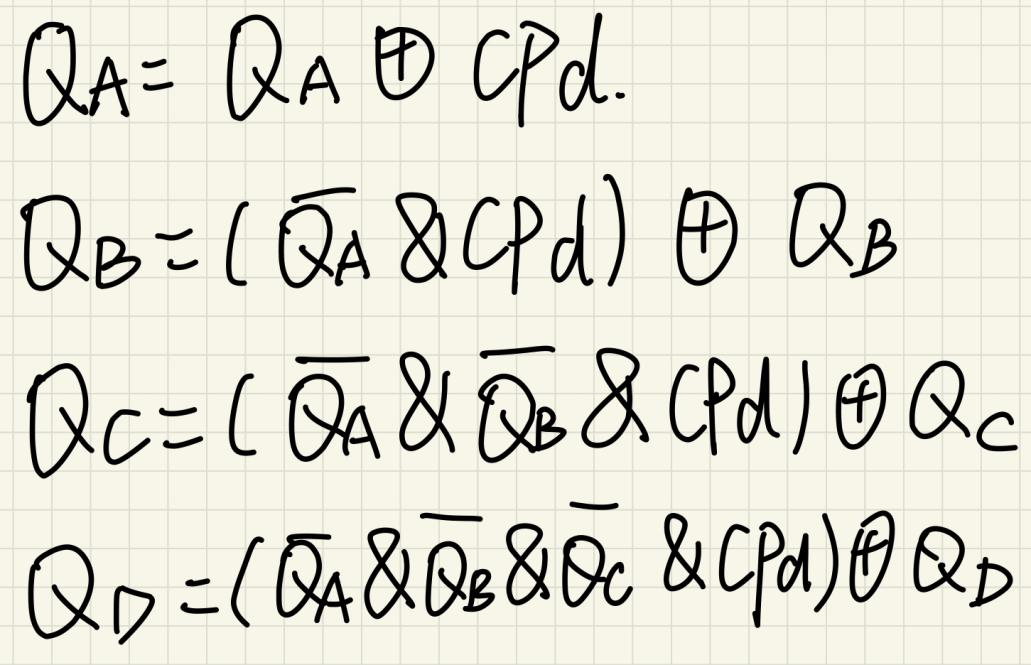 Q_A = Q_A ⊕ CPd.
Q_B = ( Q̅_A & CPd ) ⊕ Q_B
Q_C = ( Q̅_A & Q̅_B & CPd ) ⊕ Q_C
Q_D = ( Q̅_A & Q̅_B & Q̅_C & CPd ) ⊕ Q_D